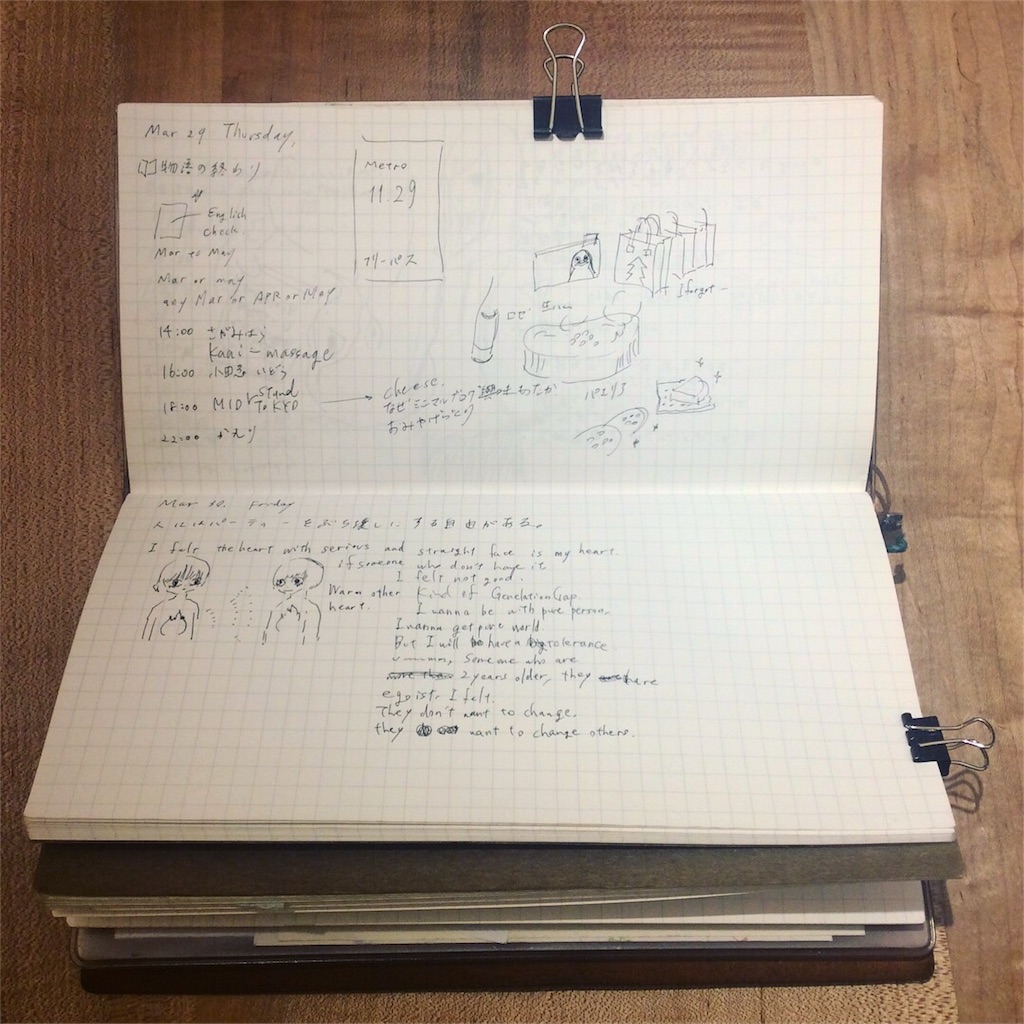 Mar 29 Thursday,
物語の終わり
English
check.
Mar to May
Mar or may
any Mar or APR or May
14:00 さがみはら
Kaai = massage
16:00 小田急
18:00 MID Stand
To KYO
22:00 かえり
Metro
11.29
フリーパス
I forgot
ロゼ
cheese.
なぜミニマル
おみやげ
Mar 30. Friday
パーティー する自由がある。
I felt the heart with serious and straight face is my heart.
if someone who don't have it
I felt not good.
Warm other
heart.
Kind of GenelationGap.
I wanna be with pure person,
I wanna get pure world
But I will have a big tolerance
someone who are
2 years older, they are
egoist, I felt.
They don't want to change.
they want to change others.